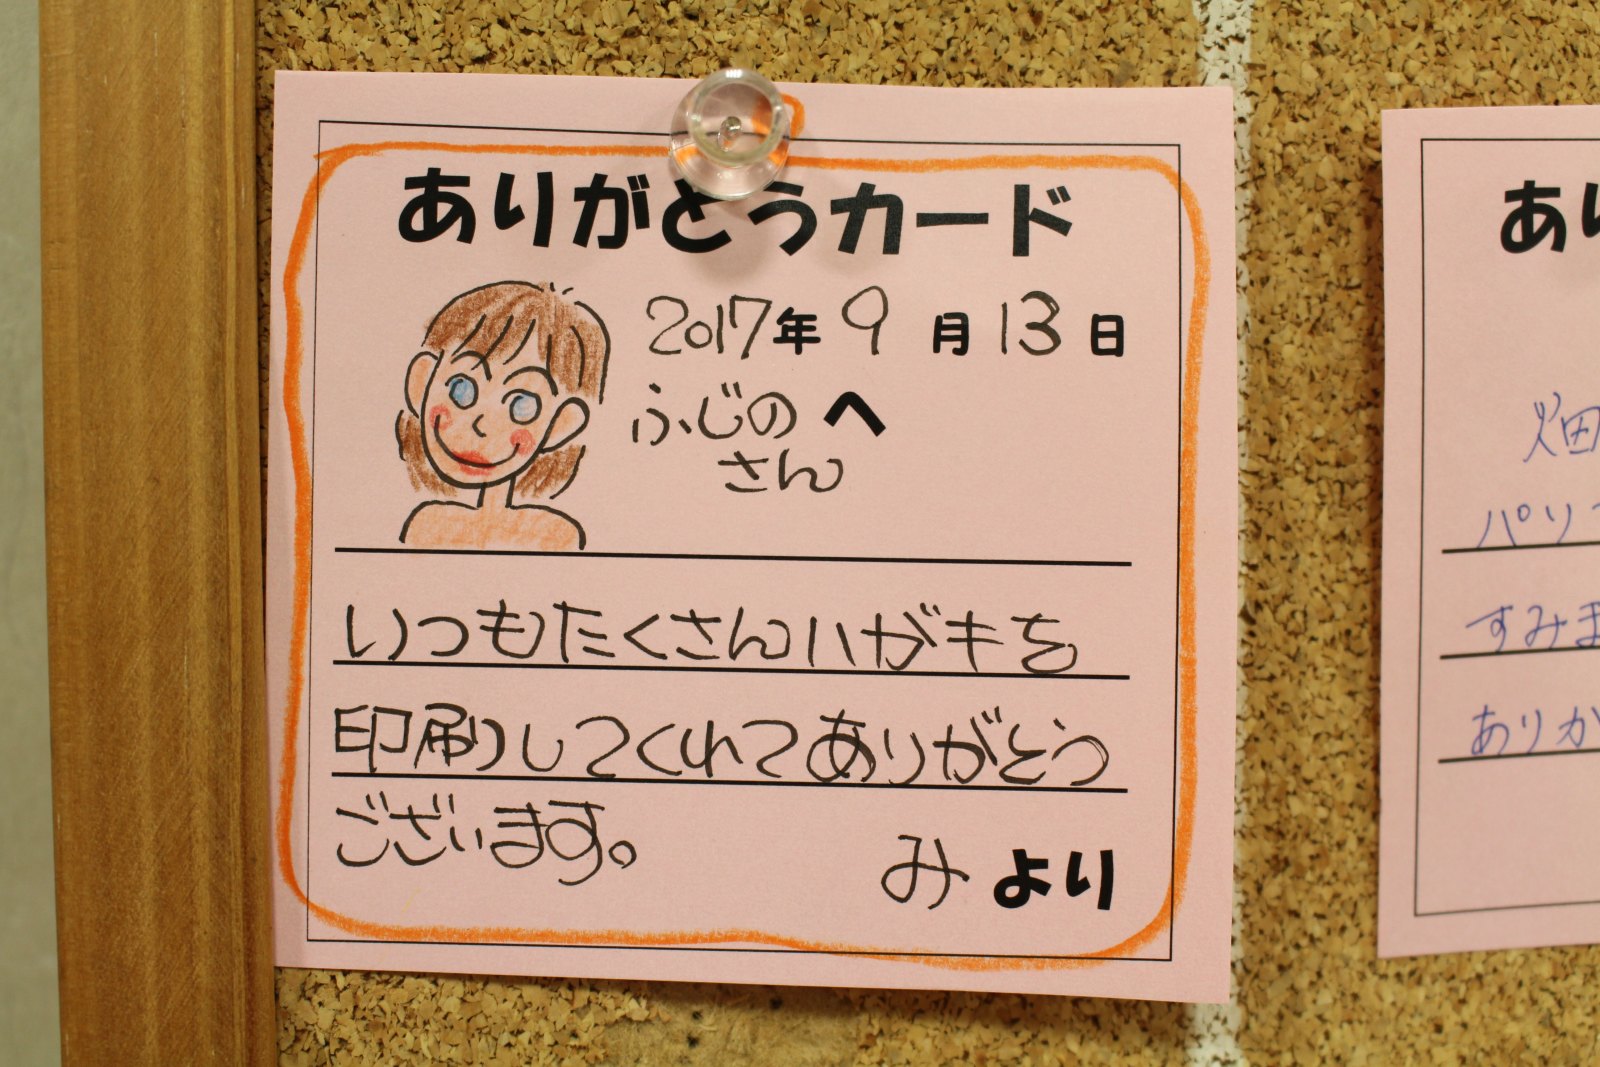 ありがとうカード
2017年 9月 13日
ふじの へ
さん
いつもたくさんハガキを
印刷してくれてありがとう
ございます。
み より
あり
畑
パリ
すみま
ありが